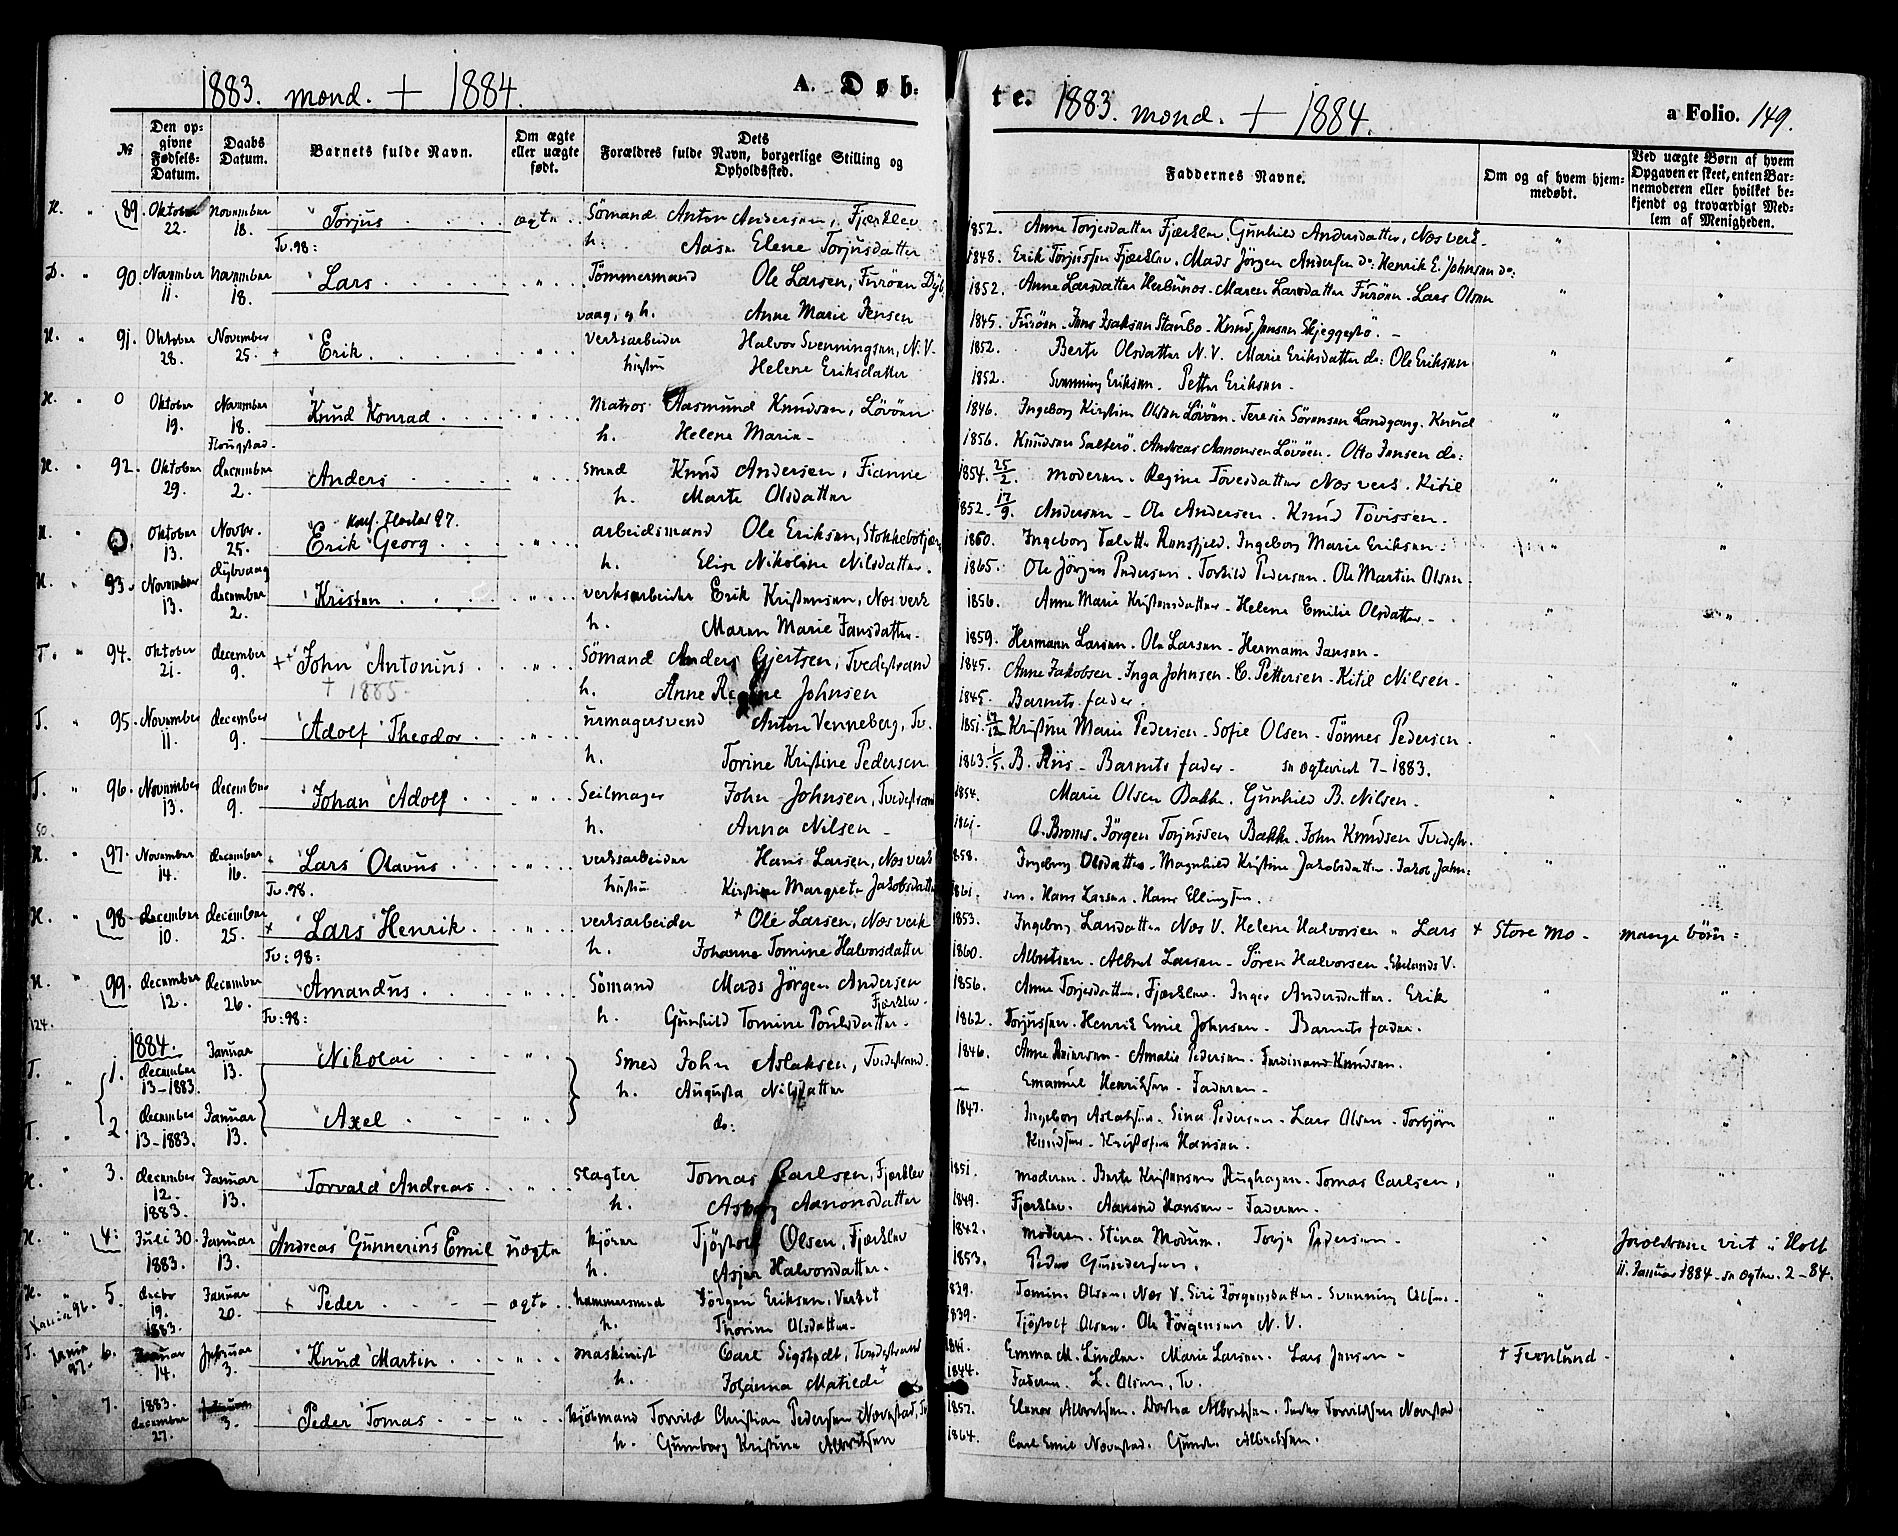 1883. mond. + 1884. A. Døb=
te. 1883. mond. + 1884. a Folio. 149.
№
Den op=
givne
Fødsels=
Datum.
Daabs
Datum.
Barnets fulde Navn.
Om ægte
eller uægte
født.
Dets
Forældres fulde Navn, borgerlige Stilling og
Opholdssted.
Faddernes Navne.
Om og af hvem hjem=
medøbt.
Ved uægte Børn af hvem
Opgaven er skeet, enten Bar=
nemoderen eller hvilket be=
kjendt og troværdigt Med=
lem af Menigheden.
H. " 89. Oktober 22. November 18. Torjus ægte Sömand Anton Andersen, Fjærklev 1852. Anne Torjesdatter Fjærklev. Gunhild Andersdatter, Næs verk.
Tv. 98: h. Aase Elene Torjusdatter 1848. Erik Torjussen Fjærklev. Mads Jörgen Andersen do: Henrik E. Johnsen do:
D. " 90. November 11. November 18. Lars " Tömmermand Ole Larsen, Furöen Dyb 1852. Anne Larsdatter Maren Larsdatter Furöen. Lars Olsen
vaag, og h. Anne Marie Jensen 1845. Furöen. Jens Isaksen Staubo. Knud Jensen Skjeggestö.
H. " 91. Oktober 28. November 25. + Erik. " Verksarbeider Halvor Svenningsen, N.V. 1852. Berte Olsdatter N.V. Marie Eriksdatter do: Ole Eriksen
hustru Helene Eriksdatter 1852. Svenning Eriksen. Petter Eriksen.
H. " 0 Oktober 19. November 18. Flougstad. Knud Konrad " Matros Aasmund Knudsen, Lövöen 1846. Ingeborg Kirstine Olsen Lövöen. Teresia Sörensen Landgang. Knud
h. Helene Marie 1856. Knudsen Salterö. Andreas Aanonsen Lövöen. Otto Jensen do:
H. " 92. Oktober 29. december 2. Anders " Smed Knud Andersen, Fianne 1854. 25/2. moderen. Regine Tovesdatter Næs verk. Kitil
h. Marte Olsdatter 1852. 17/9. Andersen. Ole Andersen. Knud Tovissen.
H. " 0. Oktober 13. Novbr. 25. Dybvaag Konf. 97. Erik Georg " arbeidsmand Ole Eriksen, 1860. Ingeborg Ramsfjeld. Ingeborg Marie Eriksen.
h. Elise Nikoline Nilsdatter. 1865. Ole Jörgen Pedersen. Torkild Pedersen. Ole Martin Olsen
H. " 93. November 13. december 2. Kristen " verksarbeider Erik Kristensen, Næs verk 1856. Anne Marie Kristensdatter. Helene Emilie Olsdatter.
h. Maren Marie Jansdatter. 1859. Hermann Larsen. Ole Larsen. Hermann Jansen.
T. " 94. Oktober 21. december 9. ++ John Antonius " Sömand Anders Gjertsen, Tvedestrand 1845. Anne Jakobsen. Inga Johnsen. C. Pettersen. Kitil Nilsen.
+ 1885. h. Anne Regine Johnsen 1845. Barnets fader.
T. " 95. November 11. december 9. Adolf Theodor " Urmagersvend Anton Venneberg, Tv. 1851. 14/12 Kristine Marie Pedersen. Sofie Olsen. Tönnes Pedersen.
h. Torine Kristine Pedersen 1863. 1/5. B. Riis. Barnets fader. 7-1883.
T. " 96. November 13. december 9. Johan Adolf " Seilmager John Johnsen, Tvedestrand 1854. Marie Olsen Bakke. Gunhild B. Nilsen.
50. h. Anna Nilsen 1861. O. Broms. Jörgen Torjussen Bakke. John Knudsen Tvedestr.
H. " 97. November 14. december 16. Lars Olavus " verksarbeider Hans Larsen, Næs verk 1858. Ingeborg Olsdatter. Magnhild Kristine Jakobsdatter. Jakob John=
Tv. 98. hustru Kirstine Margrete Jakobsdatter 1861. sen. Hans Larsen. Hans Ellingsen.
H. " 98. december 10. december 25. + Lars Henrik " verksarbeider + Ole Larsen, Næs verk 1853. Ingeborg Larsdatter Næs V. Helene Halvorsen " Lars + Store mo mange börn:
Tv: 98: h. Johanne Tomine Halvorsdatter 1860. Albretsen. Albret Larsen. Sören Halvorsen. V.
H. " 99. december 12. december 26. Amandus " Sömand Mads Jörgen Andersen Fjærklev. 1856. Anne Torjesdatter, Fjærklev. Inger Andersdatter. Erik
124. Tv: 98: h. Gunhild Tomine Poulsdatter. 1862. Torjussen. Henrik Emil Johnsen. Barnets fader.
1884.
T. " 1. december 13-1883. Januar 13. Nikolai " Smed John Aslaksen, Tvedestrand. 1846. Anne Reiersen. Amalie Pedersen. Ferdinand Knudsen.
h. Augusta Nilsdatter Emanuel Henriksen. Faderen.
T. " 2. december 13-1883. Januar 13. Axel " do: 1847. Ingeborg Aslaksen. Sina Pedersen. Lars Olsen. Torbjörn
Knudsen. Kristofer Hansen.
H. " 3. december 12. 1883. Januar 13. Torvald Andreas " slagter Tomas Carlsen, Fjærklev 1851. moderen. Berte Kristensen Rughagen. Tomas Carlsen,
h. Asborg Aanonsdatter 1849. Fjærklev. Aanond Hansen. Faderen.
H. " 4. Juli 30. 1883. Januar 13. Andreas Gunnerius Emil uægte Tjöstolf Olsen, Fjærklev 1842. moderen. Stina Modum. Terje Pedersen. Forældrene viet i Holt
h. Asjer Halvorsdatter. 1853. Peder Gundersen. 11. Januar 1884. 2-84.
H. " 5. decbr 19. 1883. Januar 20. + Peder ægte hammersmed Jörgen Eriksen. Verket 1829. Tomine Olsen, Næs V. Siri Jörgensdatter. Svenning Olsen.
96. h. Thorine Olsdatter 1839. Tjöstolf Olsen. Ole Jörgensen N.V.
T. 97. 6. Januar 14. februar 3. Knud Martin " maskinist Carl Sigstedt, Tvedestrand 1841. Emma M. Linder. Marie Larsen. Lars Jensen + Fernlund
h. Johanna Matilde + 1844. Faderen. L. Olsen, Tv.
T. " 7. 1883. december 27. 3. Peder Tomas " Kjöbmand Torvild Christian Pedersen Nævestad, Tv 1857. Elenor Albretsen. Dortea Albretsen. Peder Torvildsen Nævestad
h. Gunnborg Kristine Albretsen 1864. Carl Emil Nævestad. Albretsen.